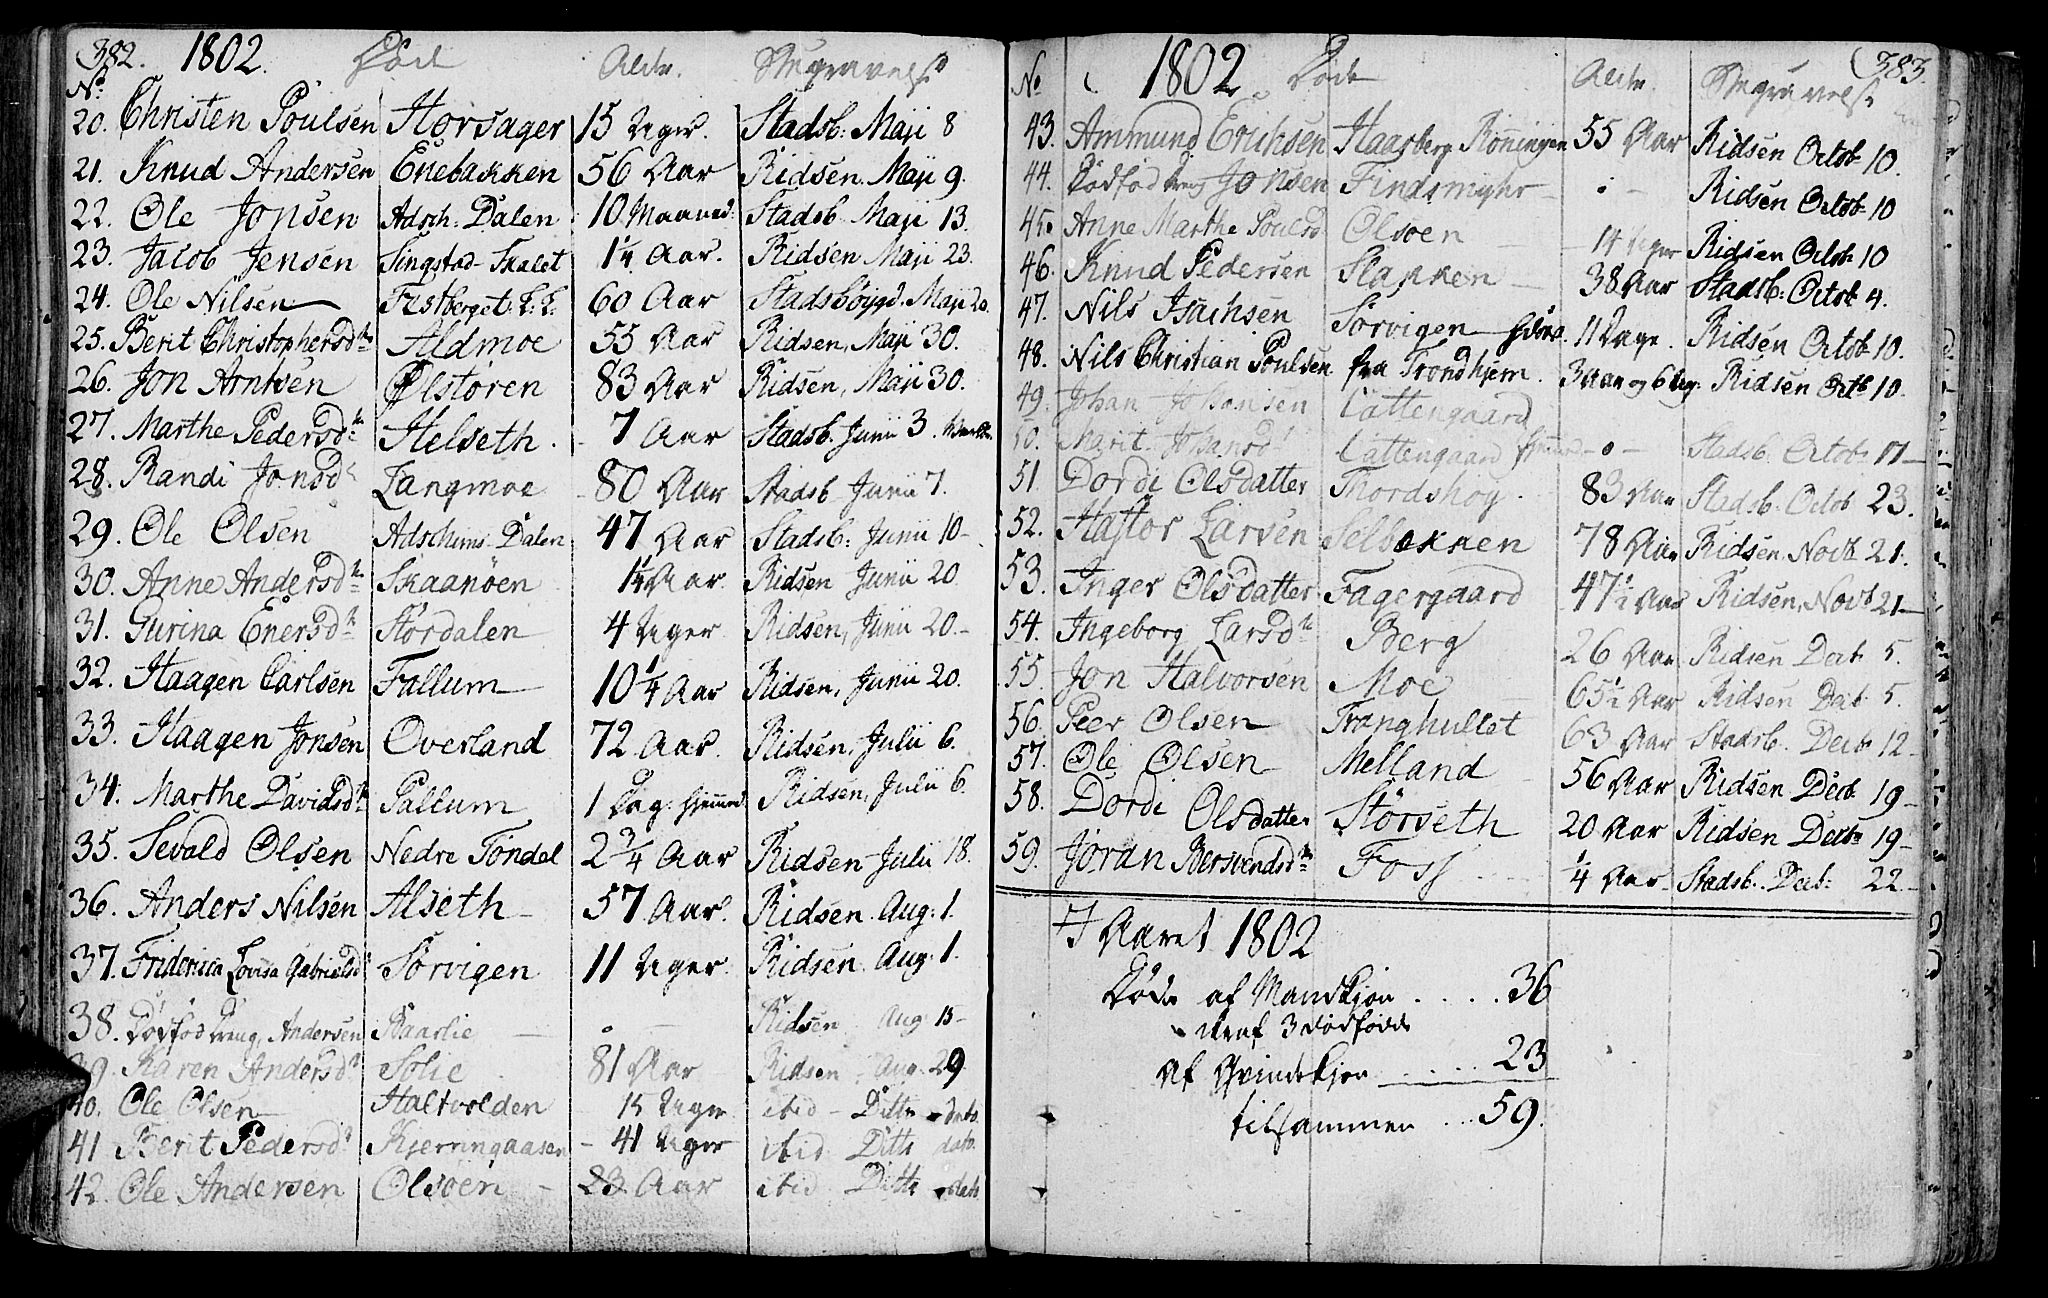 382. 1802. Døde Alder. Begravelse
No
20. Christen Poulsen Horsager 15 Uger. Stadsb: Maji 8
21. Knud Andersen Enebakken 56 Aar Ridsen. Maji 9.
22. Ole Jonsen Adsch: Dalen 10 Maaned: Stadsb. Maji 13.
23. Jacob Jensen Singstad-Skalet 1¼ Aar. Ridsen Maji 23.
24. Ole Nilsen 60 Aar Stadsböygd. Maji 20.
25. Berit Christophersdtr Aldmoe 55 Aar Ridsen, Maji 30.
26. Jon Arntsen Ølstøren 83 Aar Ridsen, Maji 30.
27. Marthe Pedersdtr Helseth. 7 Aar Stadsb. Junii 3.
28. Randi Jonsd Langmoe 80 Aar Stadsb Junii 7.
29. Ole Olsen Adschims Dalen 47 Aar Stadsb: Junii 10-
30. Anne Andersdtr Skaanöen 1¼ Aar Ridsen Junii 20.
31. Gurina Enersdtr Stördalen 4 Uger Ridsen, Junii 20.-
32. Haagen Carlsen Fallum 10¼ Aar Ridsen, Junii 20.
33. Haagen Jonsen Overland 72 Aar. Ridsen, Julii 6.
34. Marthe Davidsdtr Pallum 1 Dag. hjemmed. Ridsen, Julii 6.
35. Sevald Olsen Nedre Töndel 2¾ Aar Ridsen Julii 18.
36. Anders Nilsen Alseth 57 Aar. Ridsen. Aug: 1.
37. Friderica Lovisa Gabrielsd Sørvigen 11 Uger Ridsen. Aug: 1.
38. Dödfød Dreng, Andersen Baarlie - Ridsen Aug: 15-
39. Karen Andersdtr Solie 81 Aar Ridsen, Aug. 29
40. Ole Olsen Haltvolden 15 Uger ibid - Ditto dato
41 Berit Pedersd Kjernngaasen - 41 Uger ibid Ditto dato.
42. Ole Andersen Olsöen - 23 Aar ibid Ditto dato
No 1802 Døde Alder. Begravelse 383
43. Ammund Eriksen Haarberg Rönningen 55 Aar Ridsen Octob 10.
44. Dödfød Dreng Jonsen Findsmyhr - Ridsen Octob 10
45. Anne Marthe Poulsd Olsöen 14 Uger Ridsen Octob 10
46. Knud Pedersen Slakken 38 Aar Stadsb: Octob 4.
47. Nils Isachsen Sorvigen 11 Dage. Ridsen Octob 10.
48. Nils Christian Poulsen fra Trondhjem. 3 Aar og 6 Ug. Ridsen Octb 10.
49. Johan Johansen Cattengaard
50. Marit Johansd Cattengaard - Stadsb. Octob 17-
51 Dordi Olsdatter Thordshog. 83 Aar Stadsb. Octob 23.
52. Hastor Larsen Selbekken 78 Aar Ridsen, Novb 21.
53. Inger Olsdatter Fagergaard 47½ Aar Ridsen, Novb 21-
54. Ingeborg Larsdtr Berg 26 Aar Ridsen Decb 5.
55. Jon Halvorsen Moe 65½ Aar Ridsen Decb 5.
56. Peer Olsen Tranghullet 63 Aar Stadsb. Decb 12-
57. Ole Olsen Melland 56 Aar Ridsen Decb 19-
58. Dordi Olsdatter Störseth 20 Aar Ridsen Decb 19-
59. Joran Bersvendsdtr Foss ¼ Aar Stadsb. Decb: 22-
I Aaret 1802
Döde af Mandkjøn ..... 36
deraf 3 dødfødde
af Qvindekjøn ..... 23
tilsammen ... 59.